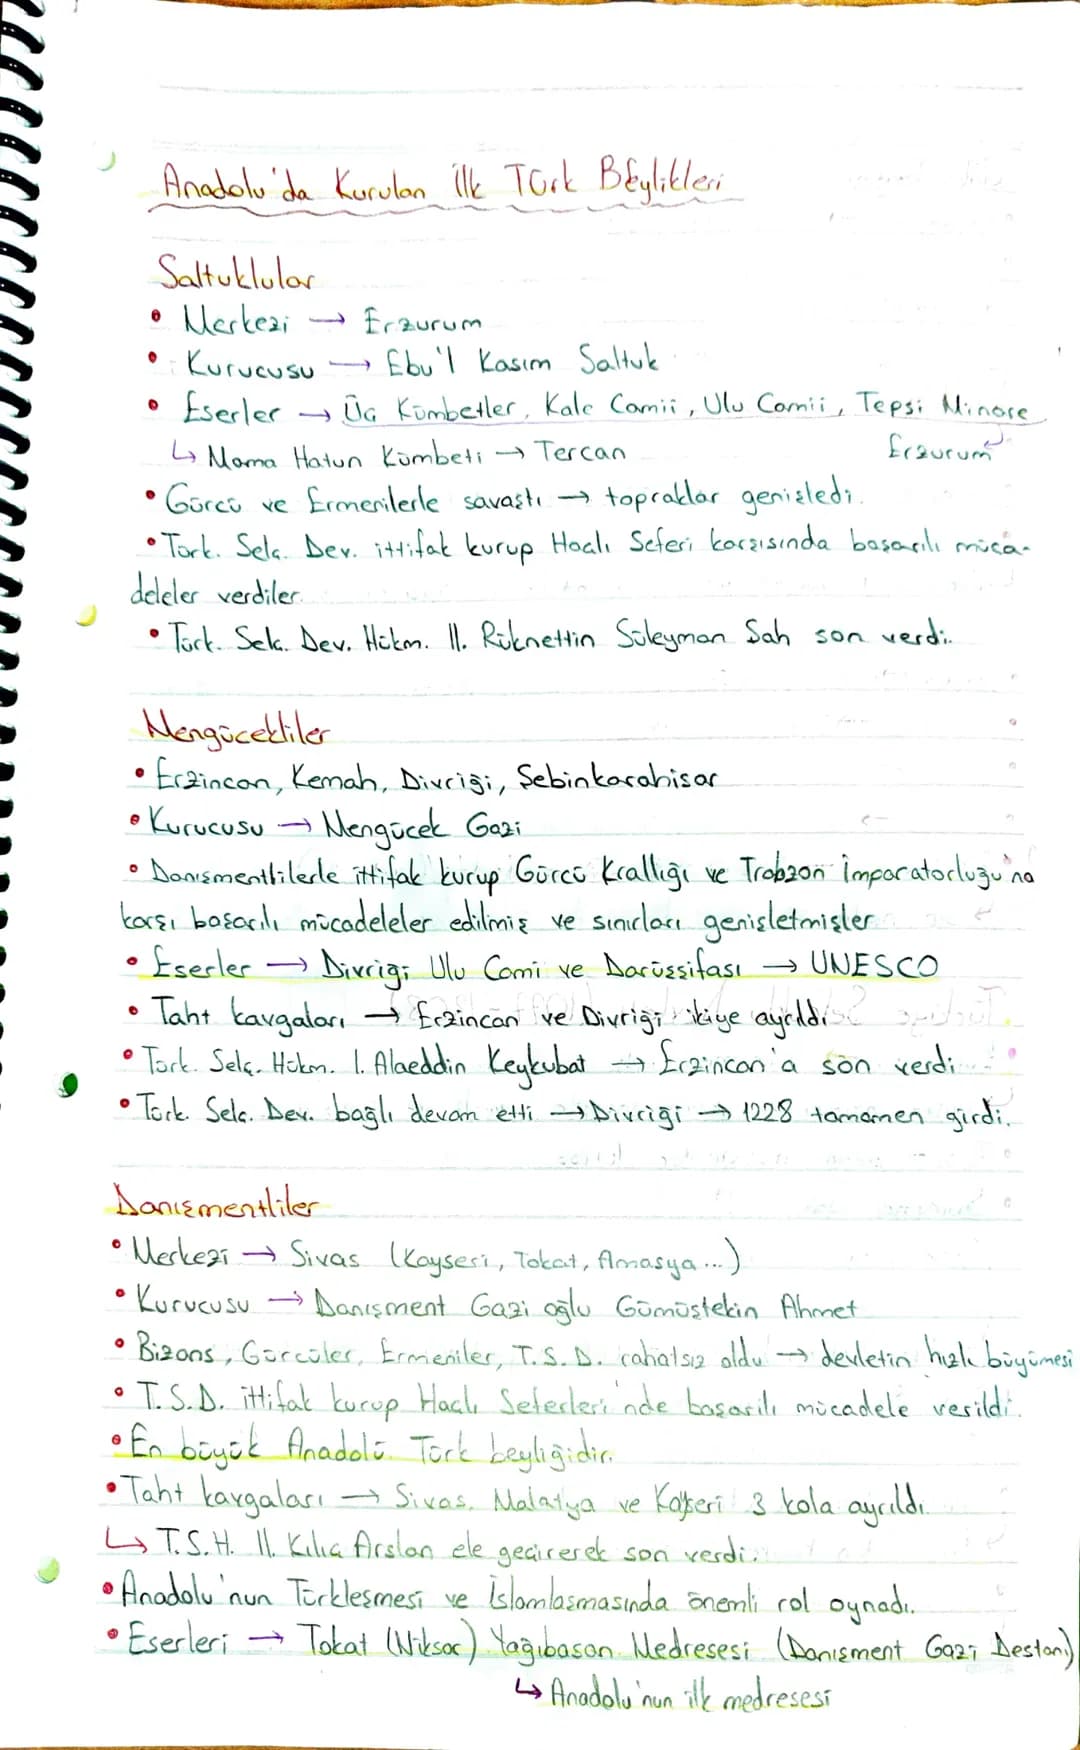 Anadolu'da Kurulan İlk Türk Beylikleri
Saltuklular
• Merkezi → Erzurum
• Kurucusu → Ebu'l Kasım Saltuk
• Eserler → Üç Kümbetler, Kale Camii, Ulu Camii, Tepsi Minare
↳ Mama Hatun Kümbeti → Tercan Erzurum
• Gürcü ve Ermenilerle savaştı → topraklar genişledi.
• Türk. Selç. Dev. ittifak kurup Haçlı Seferi karşısında başarılı müca-
deleler verdiler.
• Türk. Selç. Dev. Hükm. II. Rüknettin Süleyman Şah son verdi.
Mengücekliler
• Erzincan, Kemah, Divriği, Şebinkarahisar
• Kurucusu → Mengücek Gazi
• Danışmentlilerle ittifak kurup Gürcü Krallığı ve Trabzon İmparatorluğu'na
karşı başarılı mücadeleler edilmiş ve sınırları genişletmişler
• Eserler → Divriği Ulu Cami ve Darüşşifası → UNESCO
• Taht kavgaları → Erzincan ve Divriği ikiye ayrıldı
• Türk. Selç. Hükm. I. Alaeddin Keykubat → Erzincan'a son verdi
• Türk. Selç. Dev. bağlı devam etti → Divriği → 1228 tamamen girdi.
Danışmentliler
• Merkezi → Sivas (Kayseri, Tokat, Amasya...)
• Kurucusu → Danışment Gazi oğlu Gümüştekin Ahmet
• Bizans, Gürcüler, Ermeniler, T.S.D. rahatsız oldu → devletin hızlı büyümesi
• T.S.D. ittifak kurup Haçlı Seferleri'nde başarılı mücadele verildi.
• En büyük Anadolu Türk beyliğidir.
• Taht kavgaları → Sivas, Malatya ve Kayseri 3 kola ayrıldı.
↳ T.S.H. II. Kılıç Arslan ele geçirerek son verdi.
• Anadolu'nun Türkleşmesi ve İslamlaşmasında önemli rol oynadı.
• Eserleri → Tokat (Niksar) Yağıbasan Medresesi (Danışment Gazi Destanı)
↳ Anadolu'nun ilk medresesi